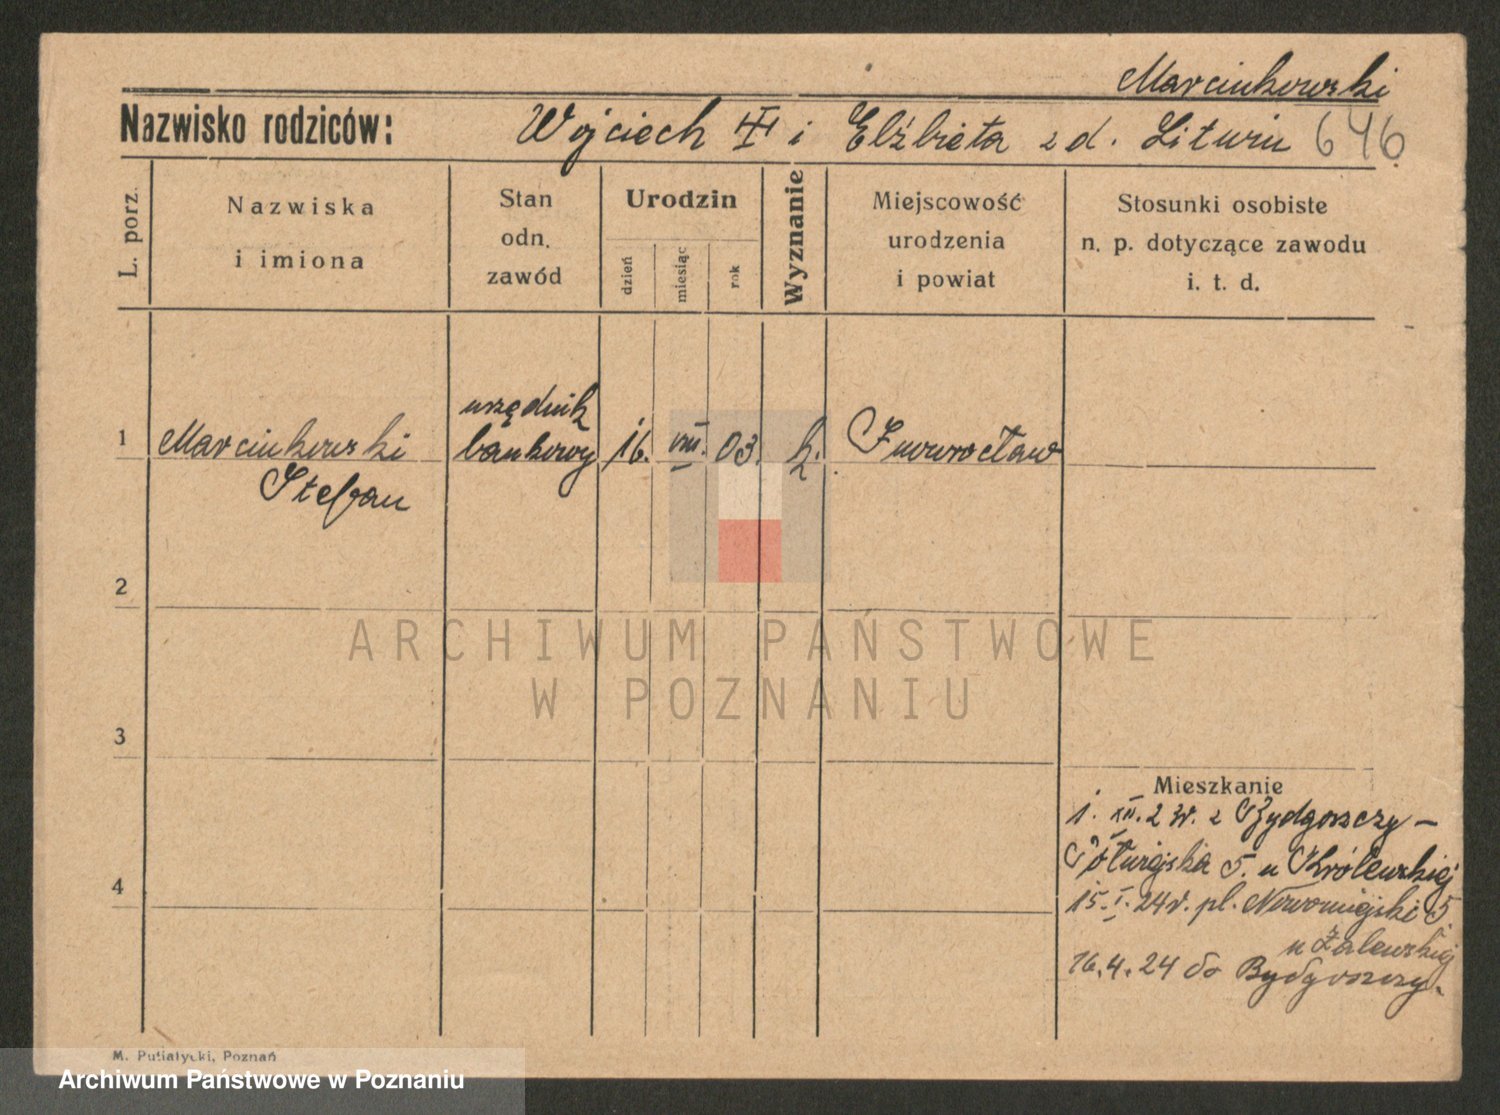 Marcinkowski
Nazwisko rodziców: Wojciech i Elżbieta z d. 646
L. porz.
Nazwiska
i imiona
Stan
odn.
zawód
Urodzin
dzień
miesiąc
rok
Wyznanie
Miejscowość
urodzenia
i powiat
Stosunki osobiste
n. p. dotyczące zawodu
i. t. d.
1
Marcinkowski
Stefan
urzędnik
bankowy
16. VIII. 03. k. Inowrocław
2
ARCHIWUM PAŃSTWOWE
W POZNANIU
3
Mieszkanie
1. XII. 23r. z Bydgoszczy –
5. u Królewskiej
4
15. I. 24r. pl. Nowomiejski 5
u Zalewskiej
16.4.24 do Bydgoszczy.
M. Putiatycki, Poznań
Archiwum Państwowe w Poznaniu